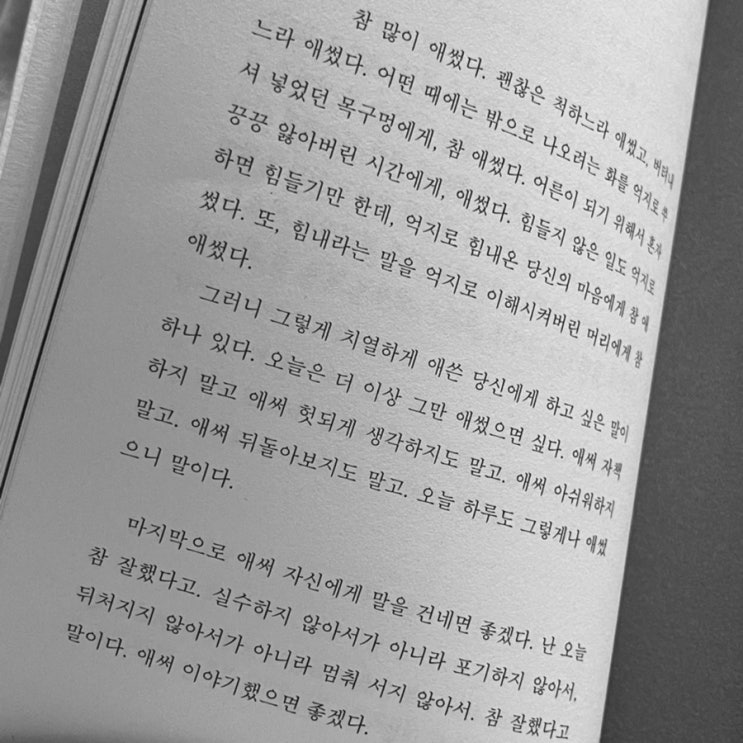 참 많이 애썼다. 괜찮은 척하느라 애썼고, 버텨내
느라 애썼다. 어떤 때에는 밖으로 나오려는 화를 억지로 쑤
셔 넣었던 목구멍에게, 참 애썼다. 어른이 되기 위해서 혼자
끙끙 앓아버린 시간에게, 애썼다. 힘들지 않은 일도 억지로
하면 힘들기만 한데, 억지로 힘내온 당신의 마음에게 참 애
썼다. 또, 힘내라는 말을 억지로 이해시켜버린 머리에게 참
애썼다.
그러니 그렇게 치열하게 애쓴 당신에게 하고 싶은 말이
하나 있다. 오늘은 더 이상 그만 애썼으면 싶다. 애써 자책
하지 말고 애써 헛되게 생각하지도 말고. 애써 아쉬워하지
말고. 애써 뒤돌아보지도 말고. 오늘 하루도 그렇게나 애썼
으니 말이다.
마지막으로 애써 자신에게 말을 건네면 좋겠다. 난 오늘
참 잘했다고. 실수하지 않아서가 아니라 포기하지 않아서,
뒤처지지 않아서가 아니라 멈춰 서지 않아서. 참 잘했다고
말이다. 애써 이야기했으면 좋겠다.